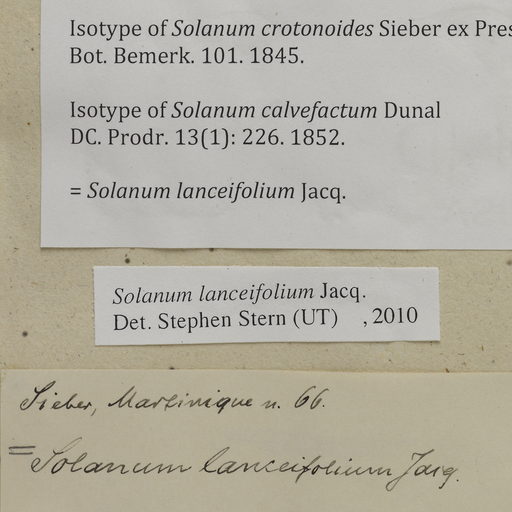 Isotype of Solanum crotonoides Sieber ex Pres
Bot. Bemerk. 101. 1845.
Isotype of Solanum calvefactum Dunal
DC. Prodr. 13(1): 226. 1852.
= Solanum lanceifolium Jacq.
Solanum lanceifolium Jacq.
Det. Stephen Stern (UT) , 2010
Sieber, Martinique n. 66.
= Solanum lanceifolium Jacq.